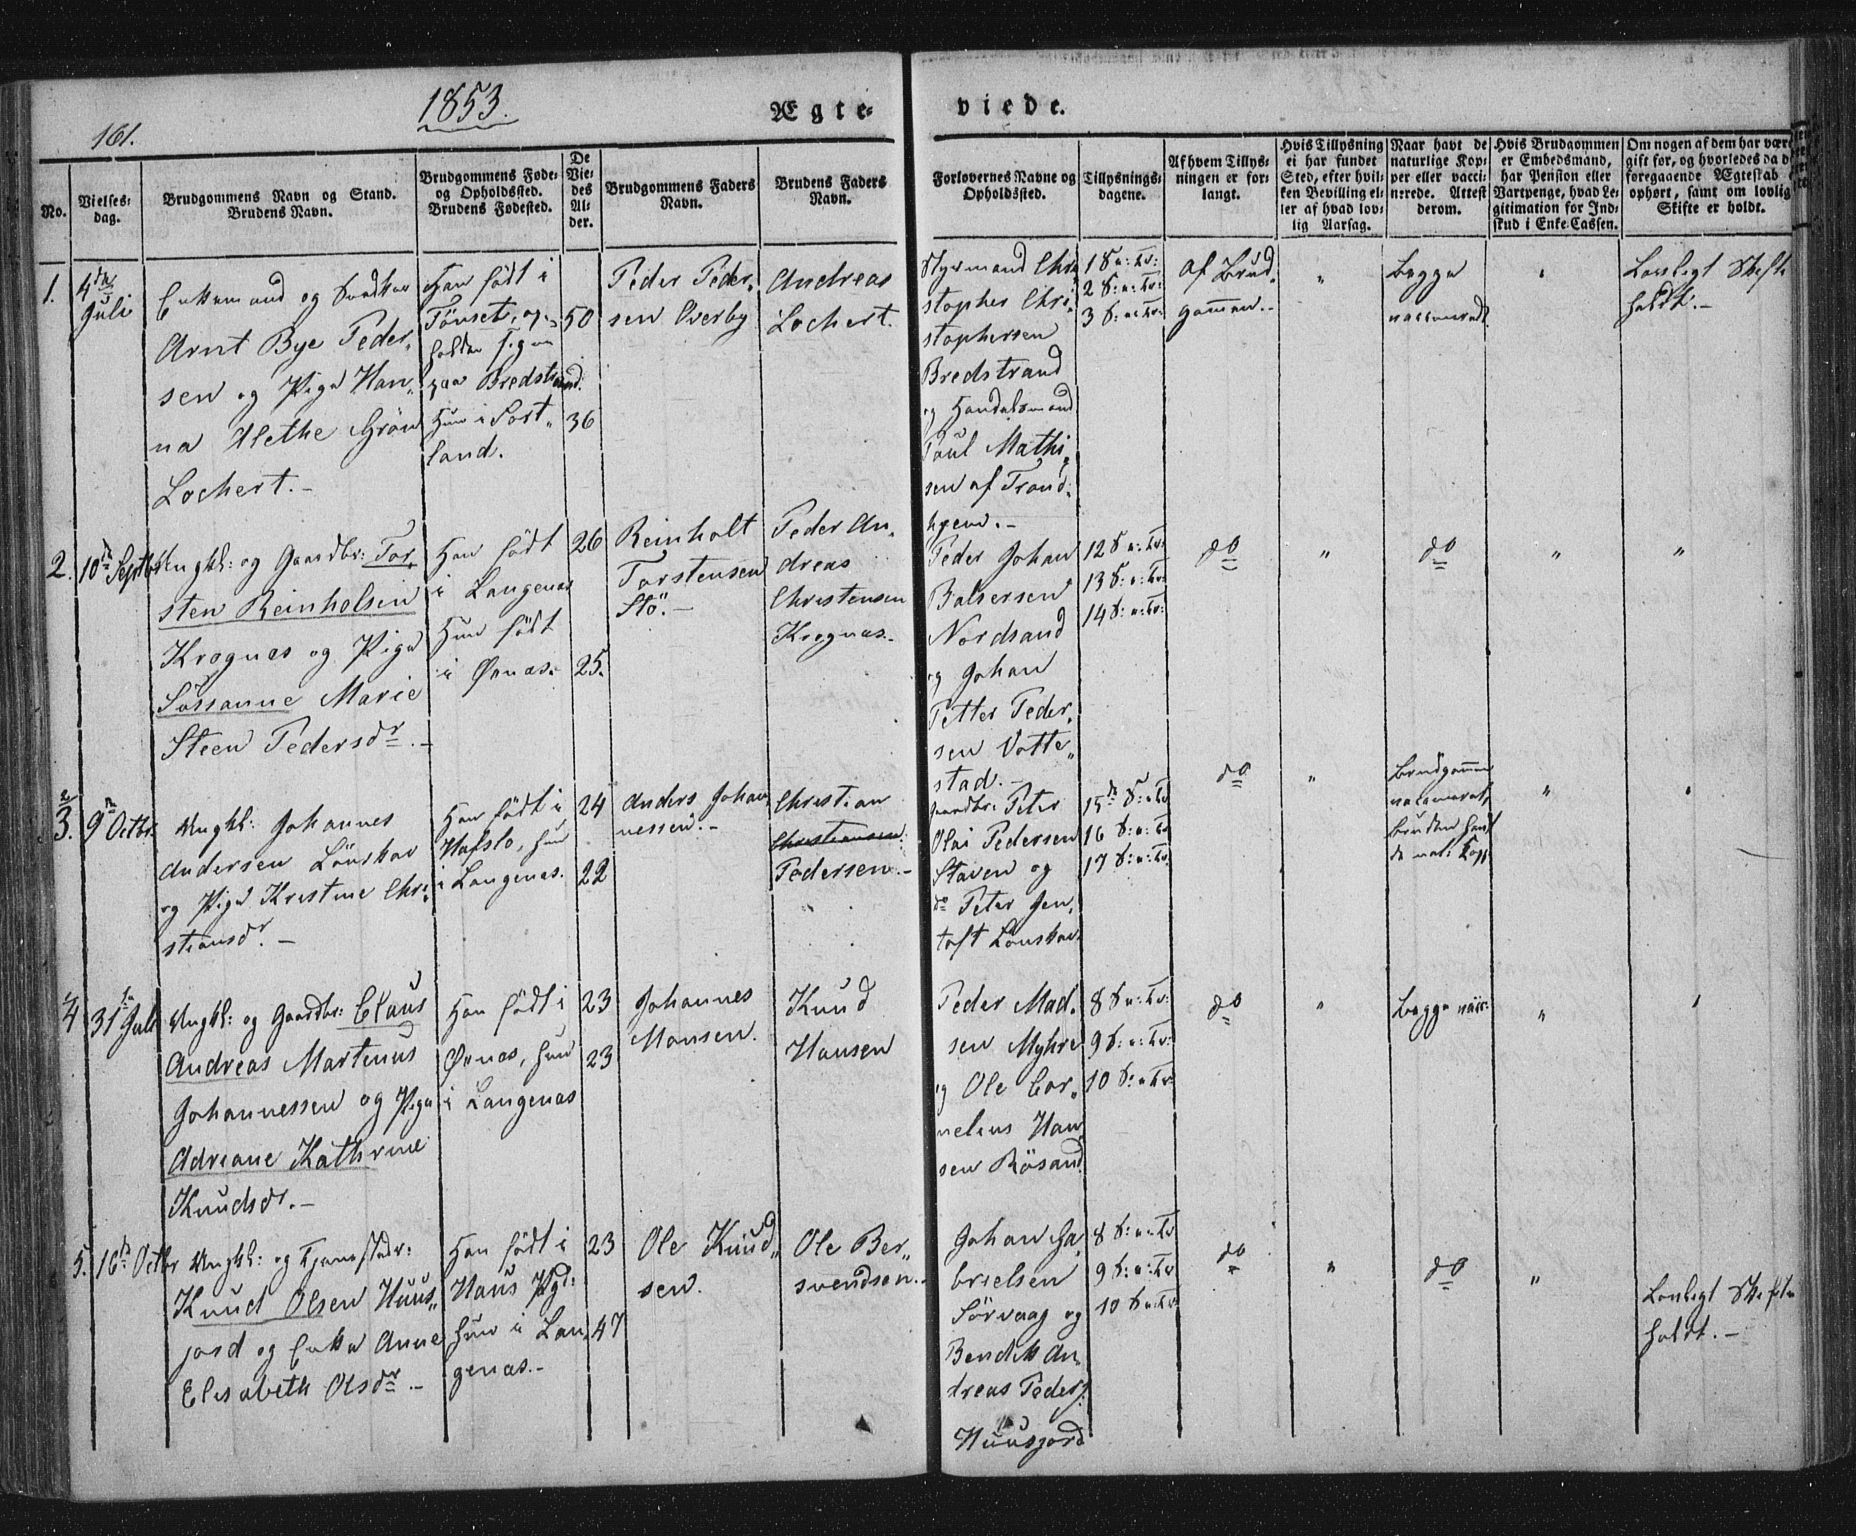 161.
1853.
Ægte-
viede.
No.
Vielses-
dag.
Brudgommens Navn og Stand.
Brudens Navn.
Brudgommens Føde-
og Opholdssted.
Brudens Fødested.
De
Vie-
des
Al-
der.
Brudgommens Faders
Navn.
Brudens Faders
Navn.
Forlovernes Navne og
Opholdssted.
Tillysnings-
dagene.
Af hvem Tillys-
ningen er for-
langt.
Hvis Tillysning
ei har fundet
Sted, efter hvil-
ken Bevilling el-
ler af hvad lov-
lig Aarsag.
Naar havt de
naturlige Kop-
per eller vacci-
nerede. Attest
derom.
Hvis Brudgommen
er Embedsmand,
har Pension eller
Vartpenge, hvad Le-
gitimation for Ind-
skud i Enke-Cassen.
Om nogen af dem har været
gift før, og hvorledes da d
foregaaende Ægteskab e
ophørt, samt om lovlig
Skifte er holdt.
1.
4de
Juli
Enkemand og
Arnt Bye Peder-
sen og Pige Han-
na Alethe Grön
Lochert.-
Han födt i
Tönset, op-
holder sig
paa Bredstrand.
Hun i Sort-
land.
50
36
Peder Peder-
sen Overby
Andreas
Lochert.
Styrmand Chri
stopher Chri-
stophersen
Bredstrand
og Handelsmand
Poul Mathi-
sen af Trond-
hjem.-
1 S: n: Tr:
2 S: n: Tr:
3 S: n: Tr:
af Brud-
gommen.-
"
Begge
vaccinerede
"
Lovligt Skifte
holdt.-
2.
10de Septbr
Ungkl: og Gaardbr: Tor-
sten Reinholsen
Krognæs og Pige
Sössanne Marie
Steen Pedersdr.-
Han födt
i Langenæs
Hun födt
i Öxnæs.
26
25.
Reinholt
Torstensen
Stö.-
Peder An-
dreas
Christensen
Krognæs.-
Peder Johan
Balsersen
Nordsand
og Johan
Petter Peder-
sen Votte-
stad.
12 S: n: Tr:
13 S: n: Tr:
14 S: n: Tr:
do
"
do
"
"
3.
9de Octbr.
Ungkl: Johannes
Andersen Lönskov
og Pige Kristine Chri-
stiansdr.-
Han födt i
Hafslo, hun
i Langenæs.
24
22
Anders Johan-
nessen.-
Christian
Christiansen
Pedersen.-
Gaardbr: Peter
Olai Pedersen
Staven og
do Peter Jen-
toft Lönskov
15de S: n: Tr
16 S: n: Tr
17 S: n: Tr.
do
"
Brudgommen
vaccineret,
Bruden havt
de nat: Kopp
"
4
31te Juli
Ungkl: og Gaardbr: Claus
Andreas Martenus
Johannessen og Pige
Adriane Kathrine
Knudsdr.-
Han födt i
Öxnæs, hun
i Langenæs
23
23
Johannes
Monsen.
Knud
Hansen
Peder Mad-
sen Myhre
og Ole Cor-
nelius Han-
sen Rösand
8 S: n: Tr:
9 S: n: Tr:
10 S: n: Tr:
do
"
Begge vacc:
"
5.
16de Octbr
Ungkl: og
Knud Olsen Huus-
jord og Enke Anne
Elisabeth Olsdr.-
Han födt i
Hous Pgl:
hun i Lan-
genæs.-
23
47
Ole Knud-
sen.
Ole Ber-
svendsen.
Johan Ga-
brielsen
Sörvaag og
Bendik An-
dreas Peders:
Huusjord
8 S: n: Tr
9 S: n: Tr
10 S: n: Tr
do
"
do
"
Lovligt Skifte
holdt.-